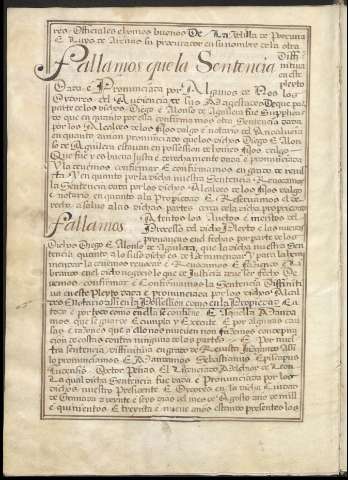 res Officiales e homes buenos De La Villa de Porcuna
E Luys de Arcano su procurador en su nombre de la otra
Fallamos que la Sentencia Diffi
nitiua
en este
pleyto
Dada e Pronunciada por Algunos de Nos los
Oydores del Audiencia de sus Magestades De que por
parte de los dichos Diego e Alonso de Aguilera fue Supplica
do que en quanto por ella confirmamos otra Sentencia dada
por los Alcaldes de los hijos dalgo e notario del Andaluzia
en quanto auian pronunciado que los dichos Diego E Alon
so de Aguilera estauan en possession de hombres hijos dalgo
Que fue y es buena Justa e derechamente dada e pronunciada
Y la deuemos confirmar E confirmamos en grado de reuis
ta Y en quanto por la dicha nuestra Sentencia Reuocamos
la Sentencia dada por los dichos Alcaldes de los hijos dalgo
e notario en quanto a la Propiedad E Reseruamos el de
recho a saluo a las dichas partes cerca de la dicha propriedad
Fallamos Atentos los Auctos e meritos del
Processo del dicho Pleyto e las nueuas
prouanças en el fechas por parte de los
Dichos Diego E Alonso de Aguilera que la dicha nuestra Sen
tencia quanto a lo suso dicho es de Hemendar Y para la hem
mendar la deuemos reuocar e Reuocamos E haziendo e Li
brando en el dicho negocio lo que de Justicia deue ser fecho De
uemos confirmar e Confirmamos la Sentencia Diffinitiua
en este Pleyto dada e pronunciada por los dichos Alcal
des E notario Assi en la Possession como en la Propiedad En
todo e por todo como en ella se contiene E Aquella Manda
mos que se guarde E cumpla Y Execute E por algunas cau
sas e razones que a ello nos mueuen non fazemos condepna
çion de costas contra ninguna de las partes E Por nues
tra sentencia diffinitiua en grado de Reuista Juzgando Assi
lo pronunciamos E Mandamos Sebastianus Episcopus
Lucensis Doctor Peñas El Licenciado Melchor de Leon
La qual dicha Sentencia fue dada e Pronunciada por los
dichos nuestro Presidente E Oydores en la dicha Ciudad
de Granada a veynte e seys dias del mes de Agosto año de mill
e quinientos E treynta e nueue años estando presentes los